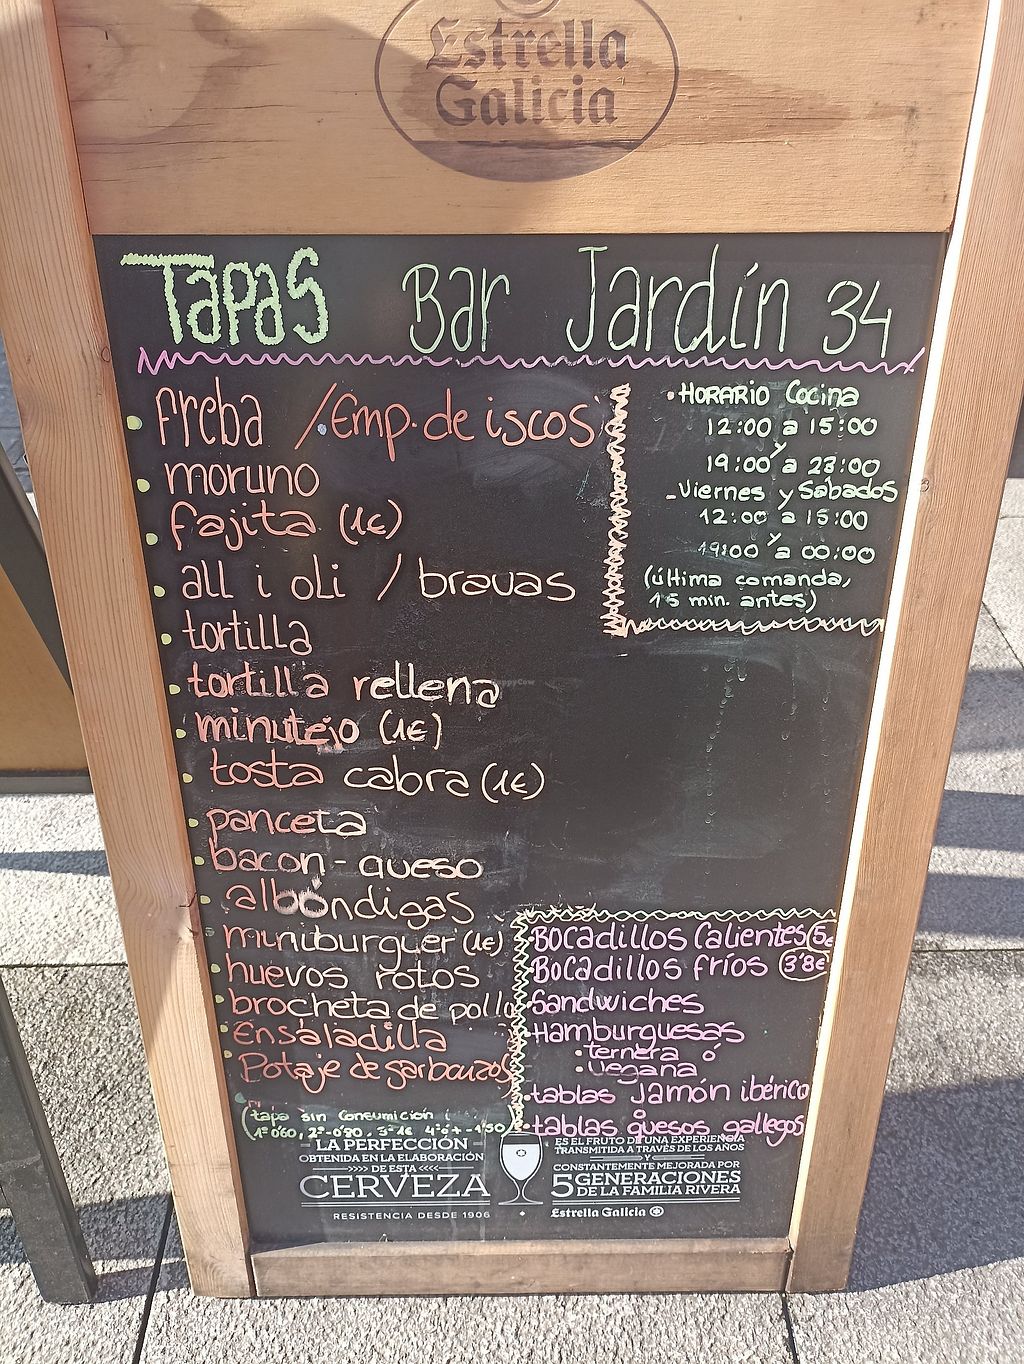 Estrella
Galicia
TAPAS Bar Jardín 34
freba / Emp. de iscos
moruno
fajita (1€)
all i oli / bravas
tortilla
tortilla rellena
minutejo (1€)
tosta cabra (1€)
panceta
bacon-queso
albóndigas
miniburguer (1€)
huevos rotos
brocheta de pollo
Ensaladilla
Potaje de garbanzos
(tapa sin consumición
1ª 0'60, 2ª -0'80, 3ª 1€ 4ª ó + -1'50)
HORARIO Cocina
12:00 a 15:00
y
19:00 a 23:00
- Viernes y Sábados
12:00 a 15:00
y
19:00 a 00:00
(última comanda,
15 min. antes)
BOCADILLOS Calientes (5€)
BOCADILLOS fríos (3'8€)
Sandwiches
Hamburguesas
ternera ó
vegana
tablas Jamón ibérico
tablas quesos gallegos
LA PERFECCIÓN
OBTENIDA EN LA ELABORACIÓN
DE ESTA
CERVEZA
RESISTENCIA DESDE 1906
ES EL FRUTO DE UNA EXPERIENCIA
TRANSMITIDA A TRAVÉS DE LOS AÑOS
Y
CONSTANTEMENTE MEJORADA POR
5 GENERACIONES
DE LA FAMILIA RIVERA
Estrella Galicia